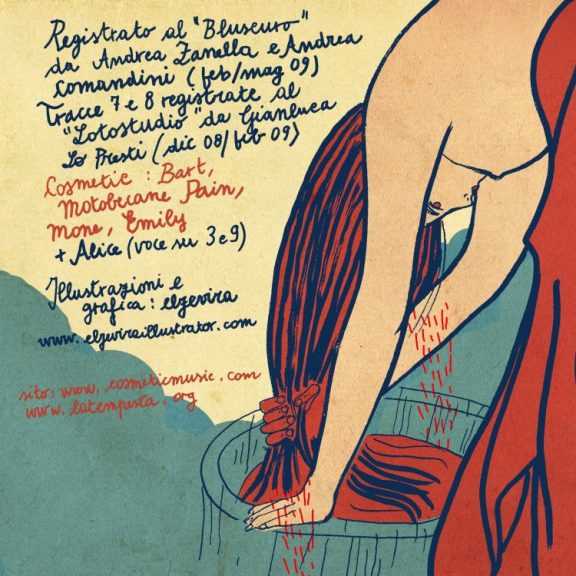 Registrato al "Bluscuro"
da Andrea Zanella e Andrea
Comandini (feb/mag 09)
Tracce 7 e 8 registrate al
"Lotostudio" da Gianluca
Lo Presti (dic 08/feb 09)
Cosmetic : Bart,
Motobecane Pain,
Mone, Emily
+ Alice (voce su 3 e 9)
Illustrazioni e
grafica : elzevira
www.elzeviraillustrator.com
sito: www.cosmeticmusic.com
www.latempesta.org